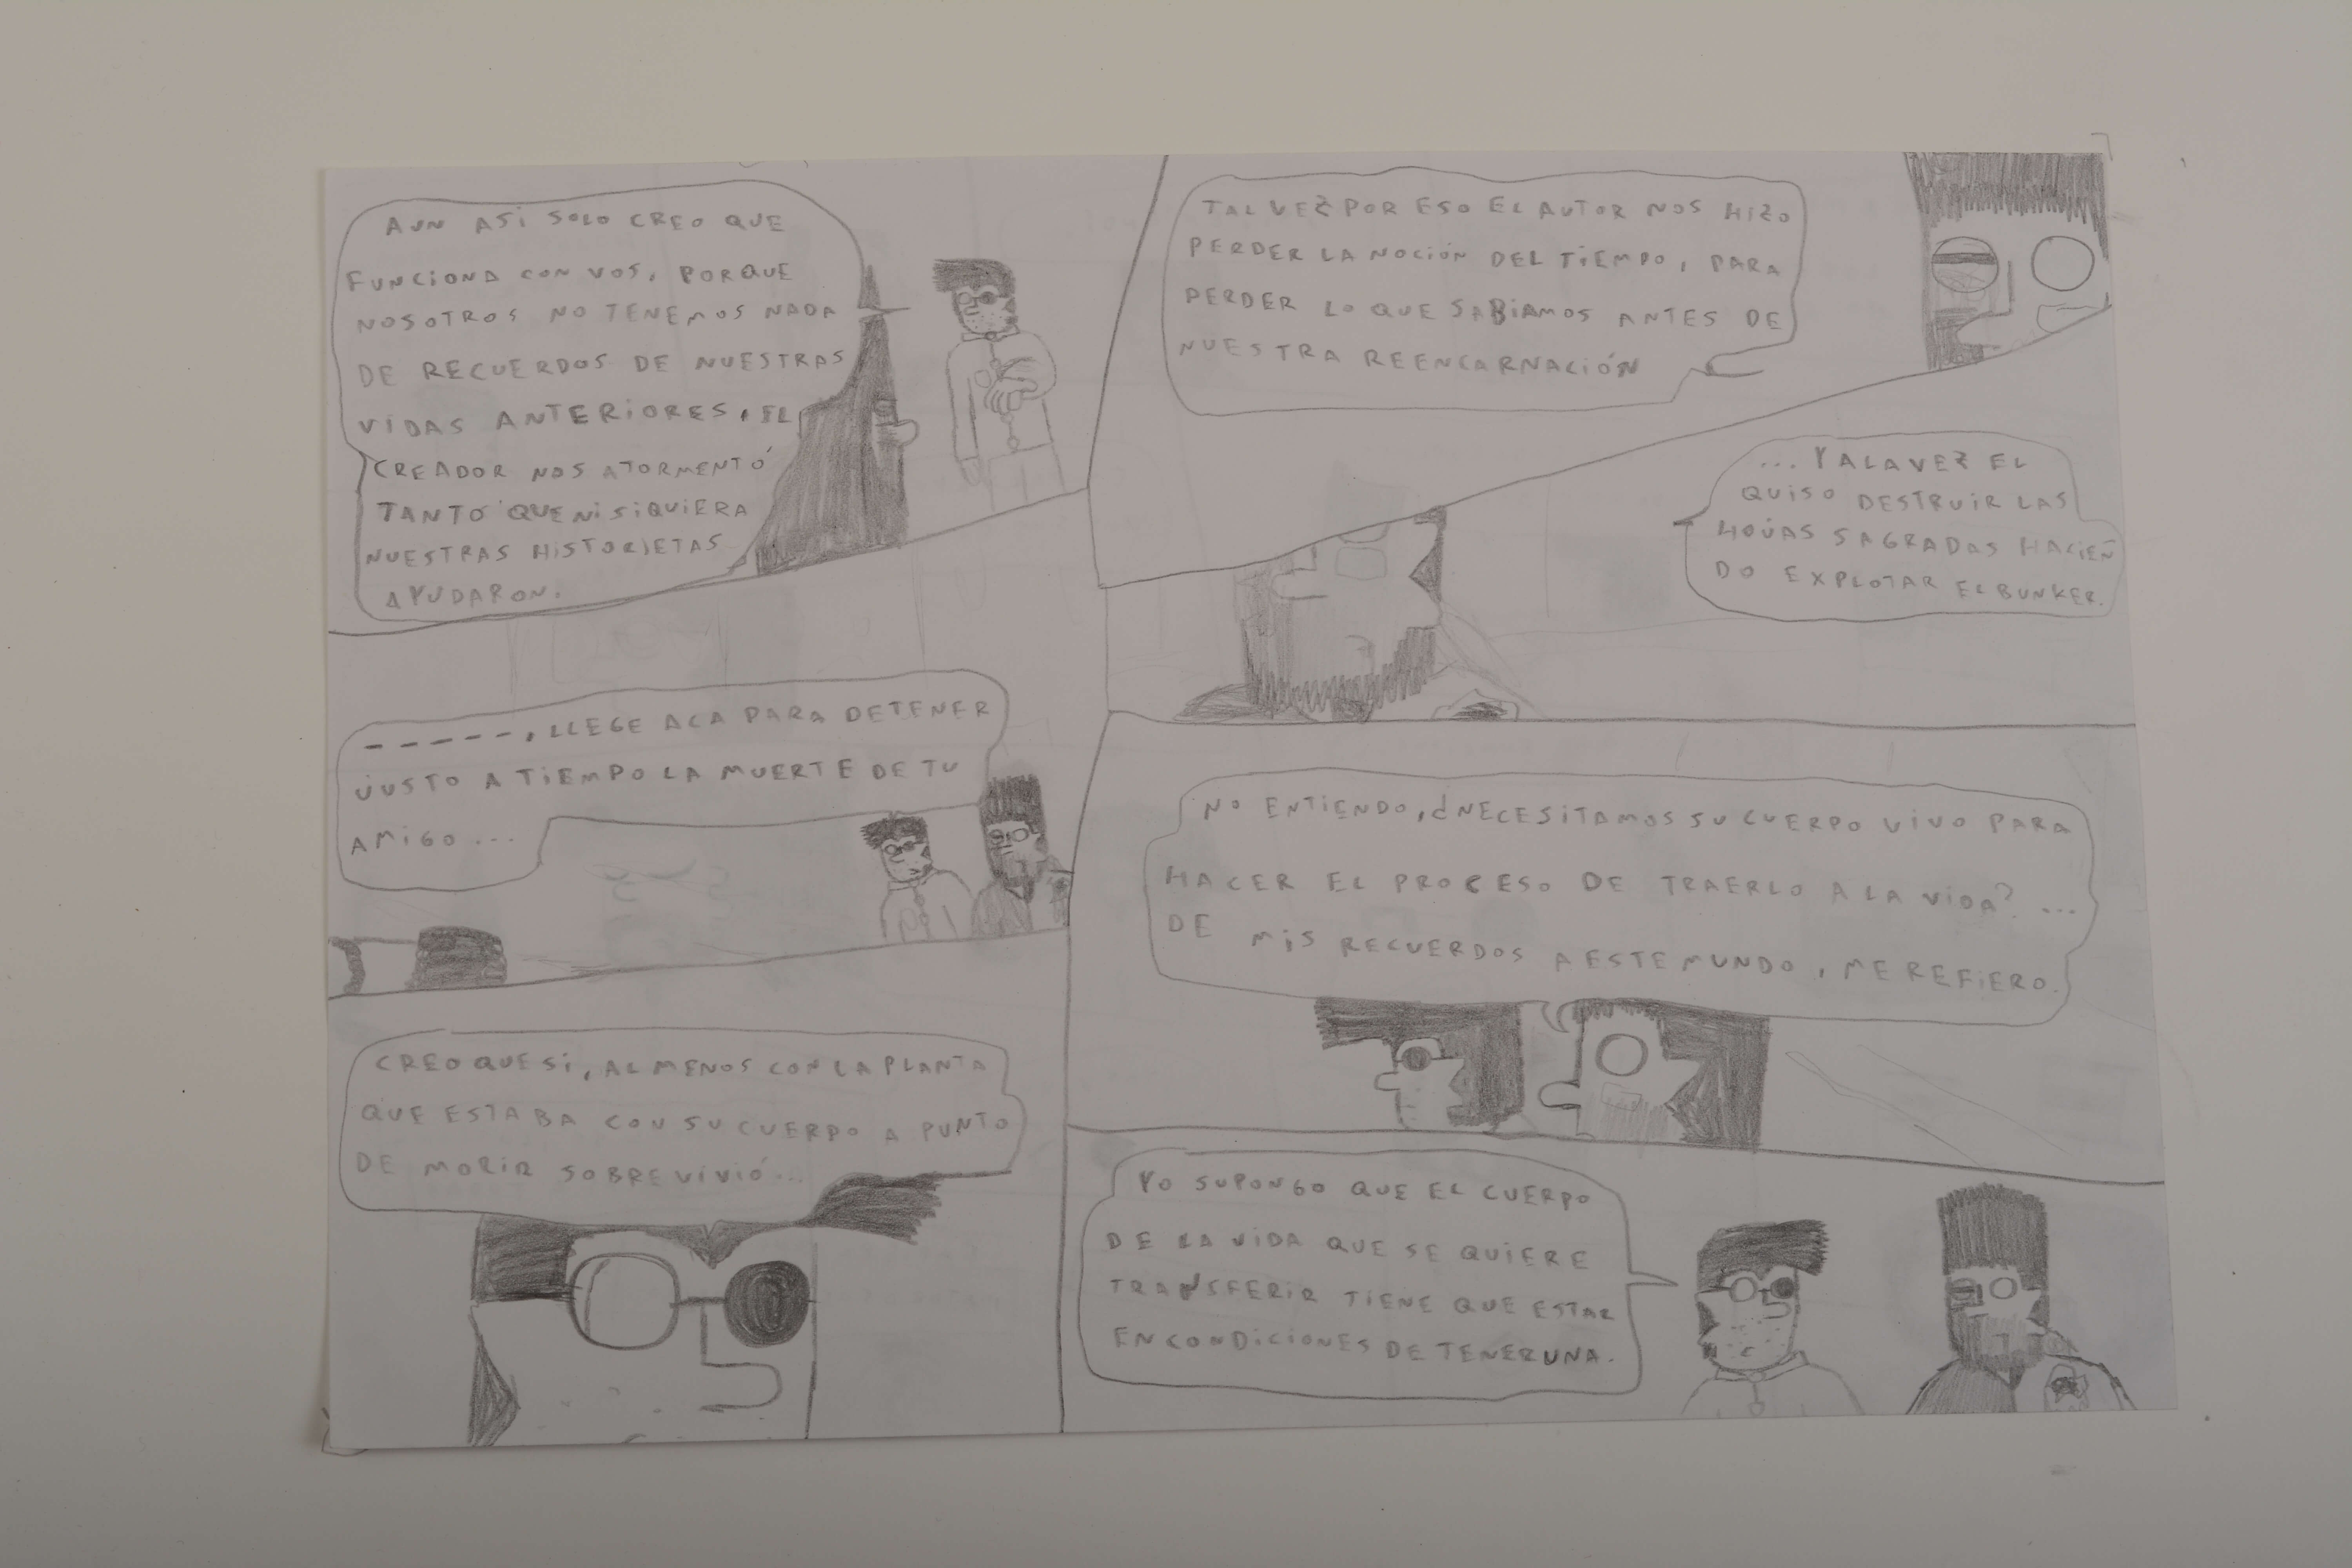 AUN ASi SOLO CREO QUE
FUNCiONA CON VOS, PORQUE
NOSOTROS NO TENEMOS NADA
DE RECUERDOS DE NUESTRAS
ViDAS ANTERiORES, EL
CREADOR NOS ATORMENTÓ
TANTO QUE Ni SiQUiERA
NUESTRAS HiSTORiETAS
AYUDARON.
TAL VEZ POR ESO EL AUTOR NOS HiZO
PERDER LA NOCiÓN DEL TiEMPO, PARA
PERDER LO QUE SABiAMOS ANTES DE
NUESTRA REENCARNACiÓN
... Y A LA VEZ EL
QUiSO DESTRUiR LAS
HOJAS SAGRADAS HACiEN
DO EXPLOTAR EL BUNKER.
-----, LLEGE ACA PARA DETENER
JUSTO A TiEMPO LA MUERTE DE TU
AMiGO ...
NO ENTiENDO, ¿NECESiTAMOS SU CUERPO ViVO PARA
HACER EL PROCESO DE TRAERLO A LA ViDA? ...
DE MiS RECUERDOS A ESTE MUNDO, ME REFiERO.
CREO QUE Si, AL MENOS CON LA PLANTA
QUE ESTABA CON SU CUERPO A PUNTO
DE MORiR SOBREViViÓ...
YO SUPONGO QUE EL CUERPO
DE LA ViDA QUE SE QUiERE
TRANSFERiR TiENE QUE ESTAR
EN CONDiCiONES DE TENER UNA.